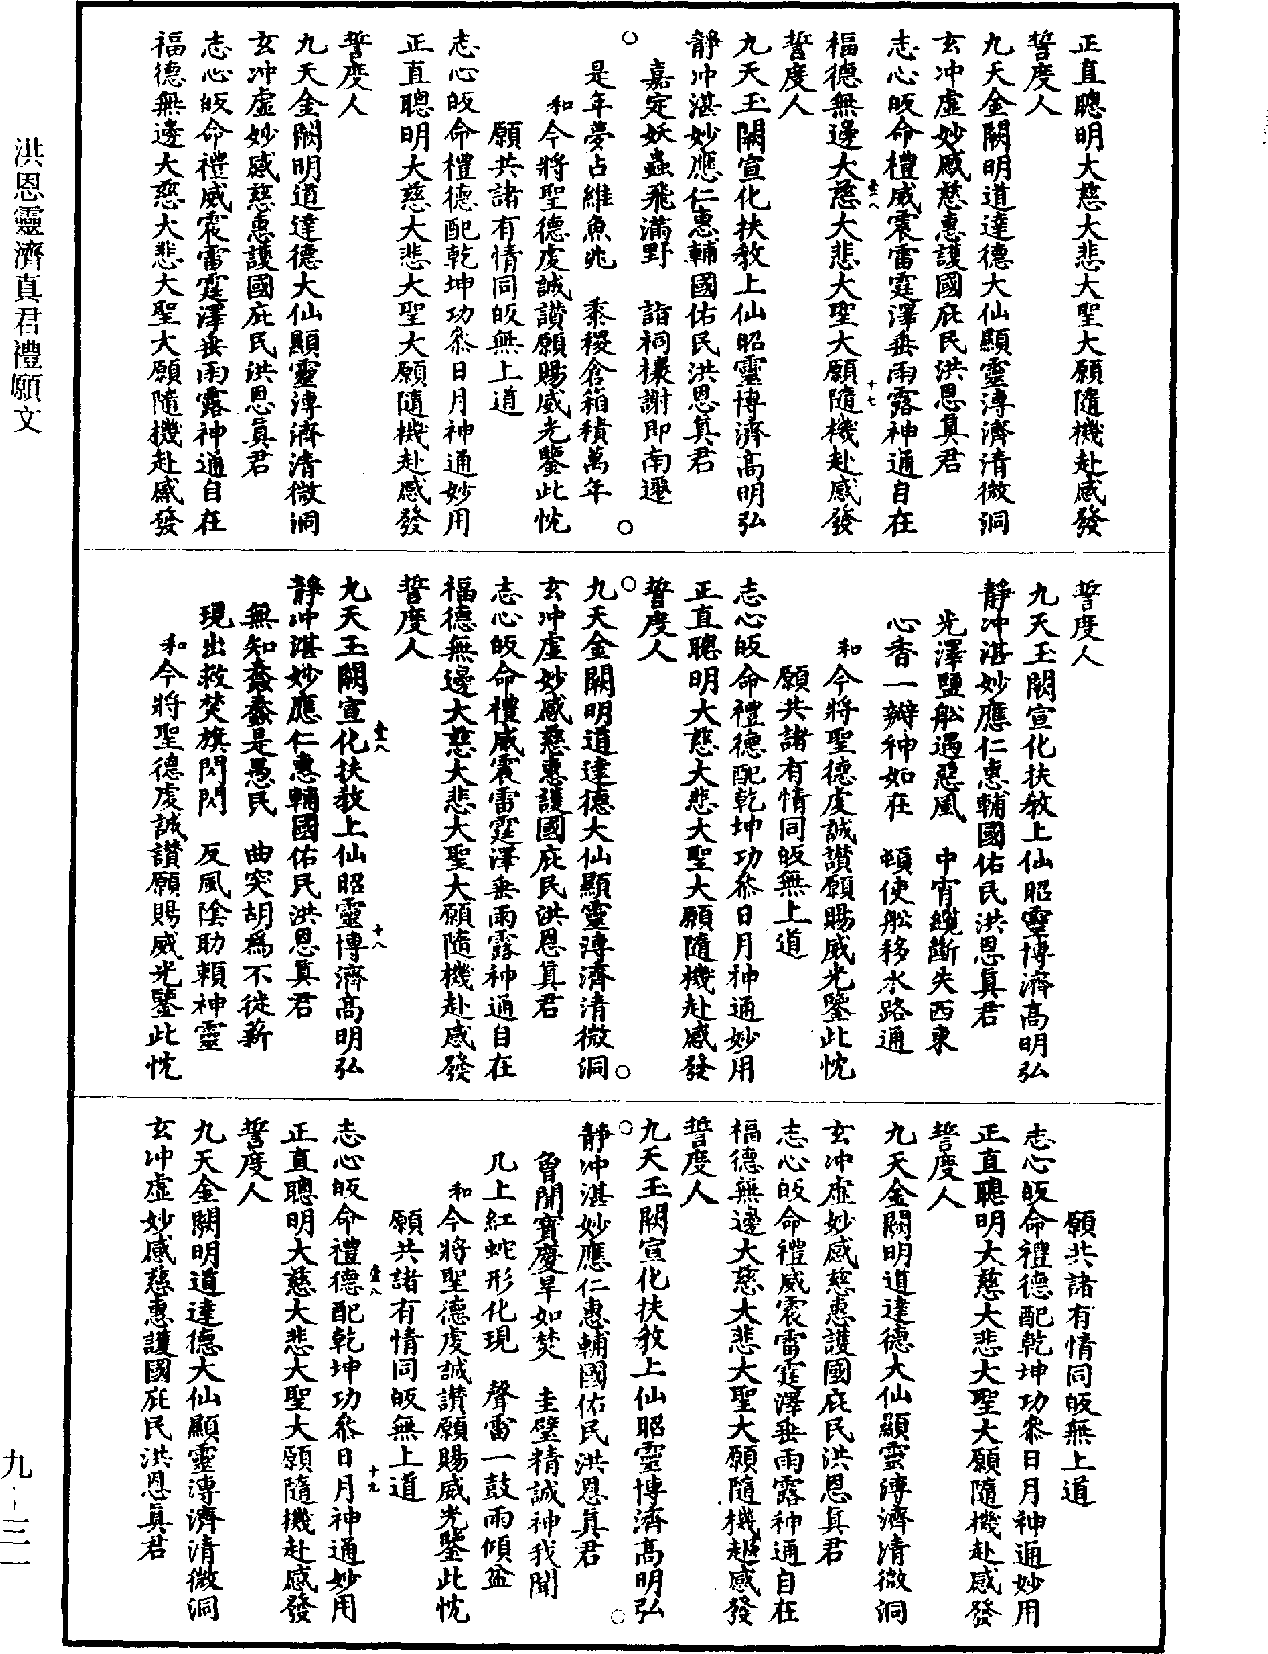 正直聰明大慈大悲大聖大願隨機赴感發
誓度人
九天金闕明道達德大仙顯靈溥濟清微洞
玄冲虛妙感慈惠護國庇民洪恩真君
志心皈命禮威震雷霆澤垂雨露神通自在
福德無邊大慈大悲大聖大願隨機赴感發
壹八
十七
誓度人
九天玉闕宣化扶教上仙昭靈博濟高明弘
靜冲湛妙應仁惠輔國佑民洪恩真君
嘉定妖蟲飛滿野　詣祠禳謝即南遷
○
○
是年夢占維魚兆　黍稷倉箱積萬年
和今將聖德虔誠讃願賜威光鑒此忱
願共諸有情同皈無上道
志心皈命禮德配乾坤功叅日月神通妙用
正直聰明大慈大悲大聖大願隨機赴感發
誓度人
九天金闕明道達德大仙顯靈溥濟清微洞
玄冲虛妙感慈惠護國庇民洪恩真君
志心皈命禮威震雷霆澤垂雨露神通自在
福德無邊大慈大悲大聖大願隨機赴感發
誓度人
九天玉闕宣化扶教上仙昭靈博濟高明弘
靜冲湛妙應仁惠輔國佑民洪恩真君
光澤鹽船遇惡風　中宵纜斷失西東
心香一瓣神如在　頓使船移水路通
和今將聖德虔誠讃願賜威光鑒此忱
願共諸有情同皈無上道
志心皈命禮德配乾坤功叅日月神通妙用
正直聰明大慈大悲大聖大願隨機赴感發
誓度人
○
○
九天金闕明道達德大仙顯靈溥濟清微洞
玄冲虛妙感慈惠護國庇民洪恩真君
志心皈命禮威震雷霆澤垂雨露神通自在
福德無邊大慈大悲大聖大願隨機赴感發
誓度人
壹八
十八
九天玉闕宣化扶教上仙昭靈博濟高明弘
靜冲湛妙應仁惠輔國佑民洪恩真君
無知蠢蠢是愚民　曲突胡爲不徙薪
現出救焚旗閃閃　反風陰助賴神靈
和今將聖德虔誠讃願賜威光鑒此忱
願共諸有情同皈無上道
志心皈命禮德配乾坤功叅日月神通妙用
正直聰明大慈大悲大聖大願隨機赴感發
誓度人
九天金闕明道達德大仙顯靈溥濟清微洞
玄冲虛妙感慈惠護國庇民洪恩真君
志心皈命禮威震雷霆澤垂雨露神通自在
福德無邊大慈大悲大聖大願隨機赴感發
誓度人
九天玉闕宣化扶教上仙昭靈博濟高明弘
○
○
靜冲湛妙應仁惠輔國佑民洪恩真君
曾聞寶慶旱如焚　圭璧精誠神我聞
几上紅蛇形化現　聲雷一鼓雨傾盆
和今將聖德虔誠讃願賜威光鑒此忱
願共諸有情同皈無上道
壹八
十九
志心皈命禮德配乾坤功叅日月神通妙用
正直聰明大慈大悲大聖大願隨機赴感發
誓度人
九天金闕明道達德大仙顯靈溥濟清微洞
玄冲虛妙感慈惠護國庇民洪恩真君
洪恩靈濟真君禮願文
九-三一